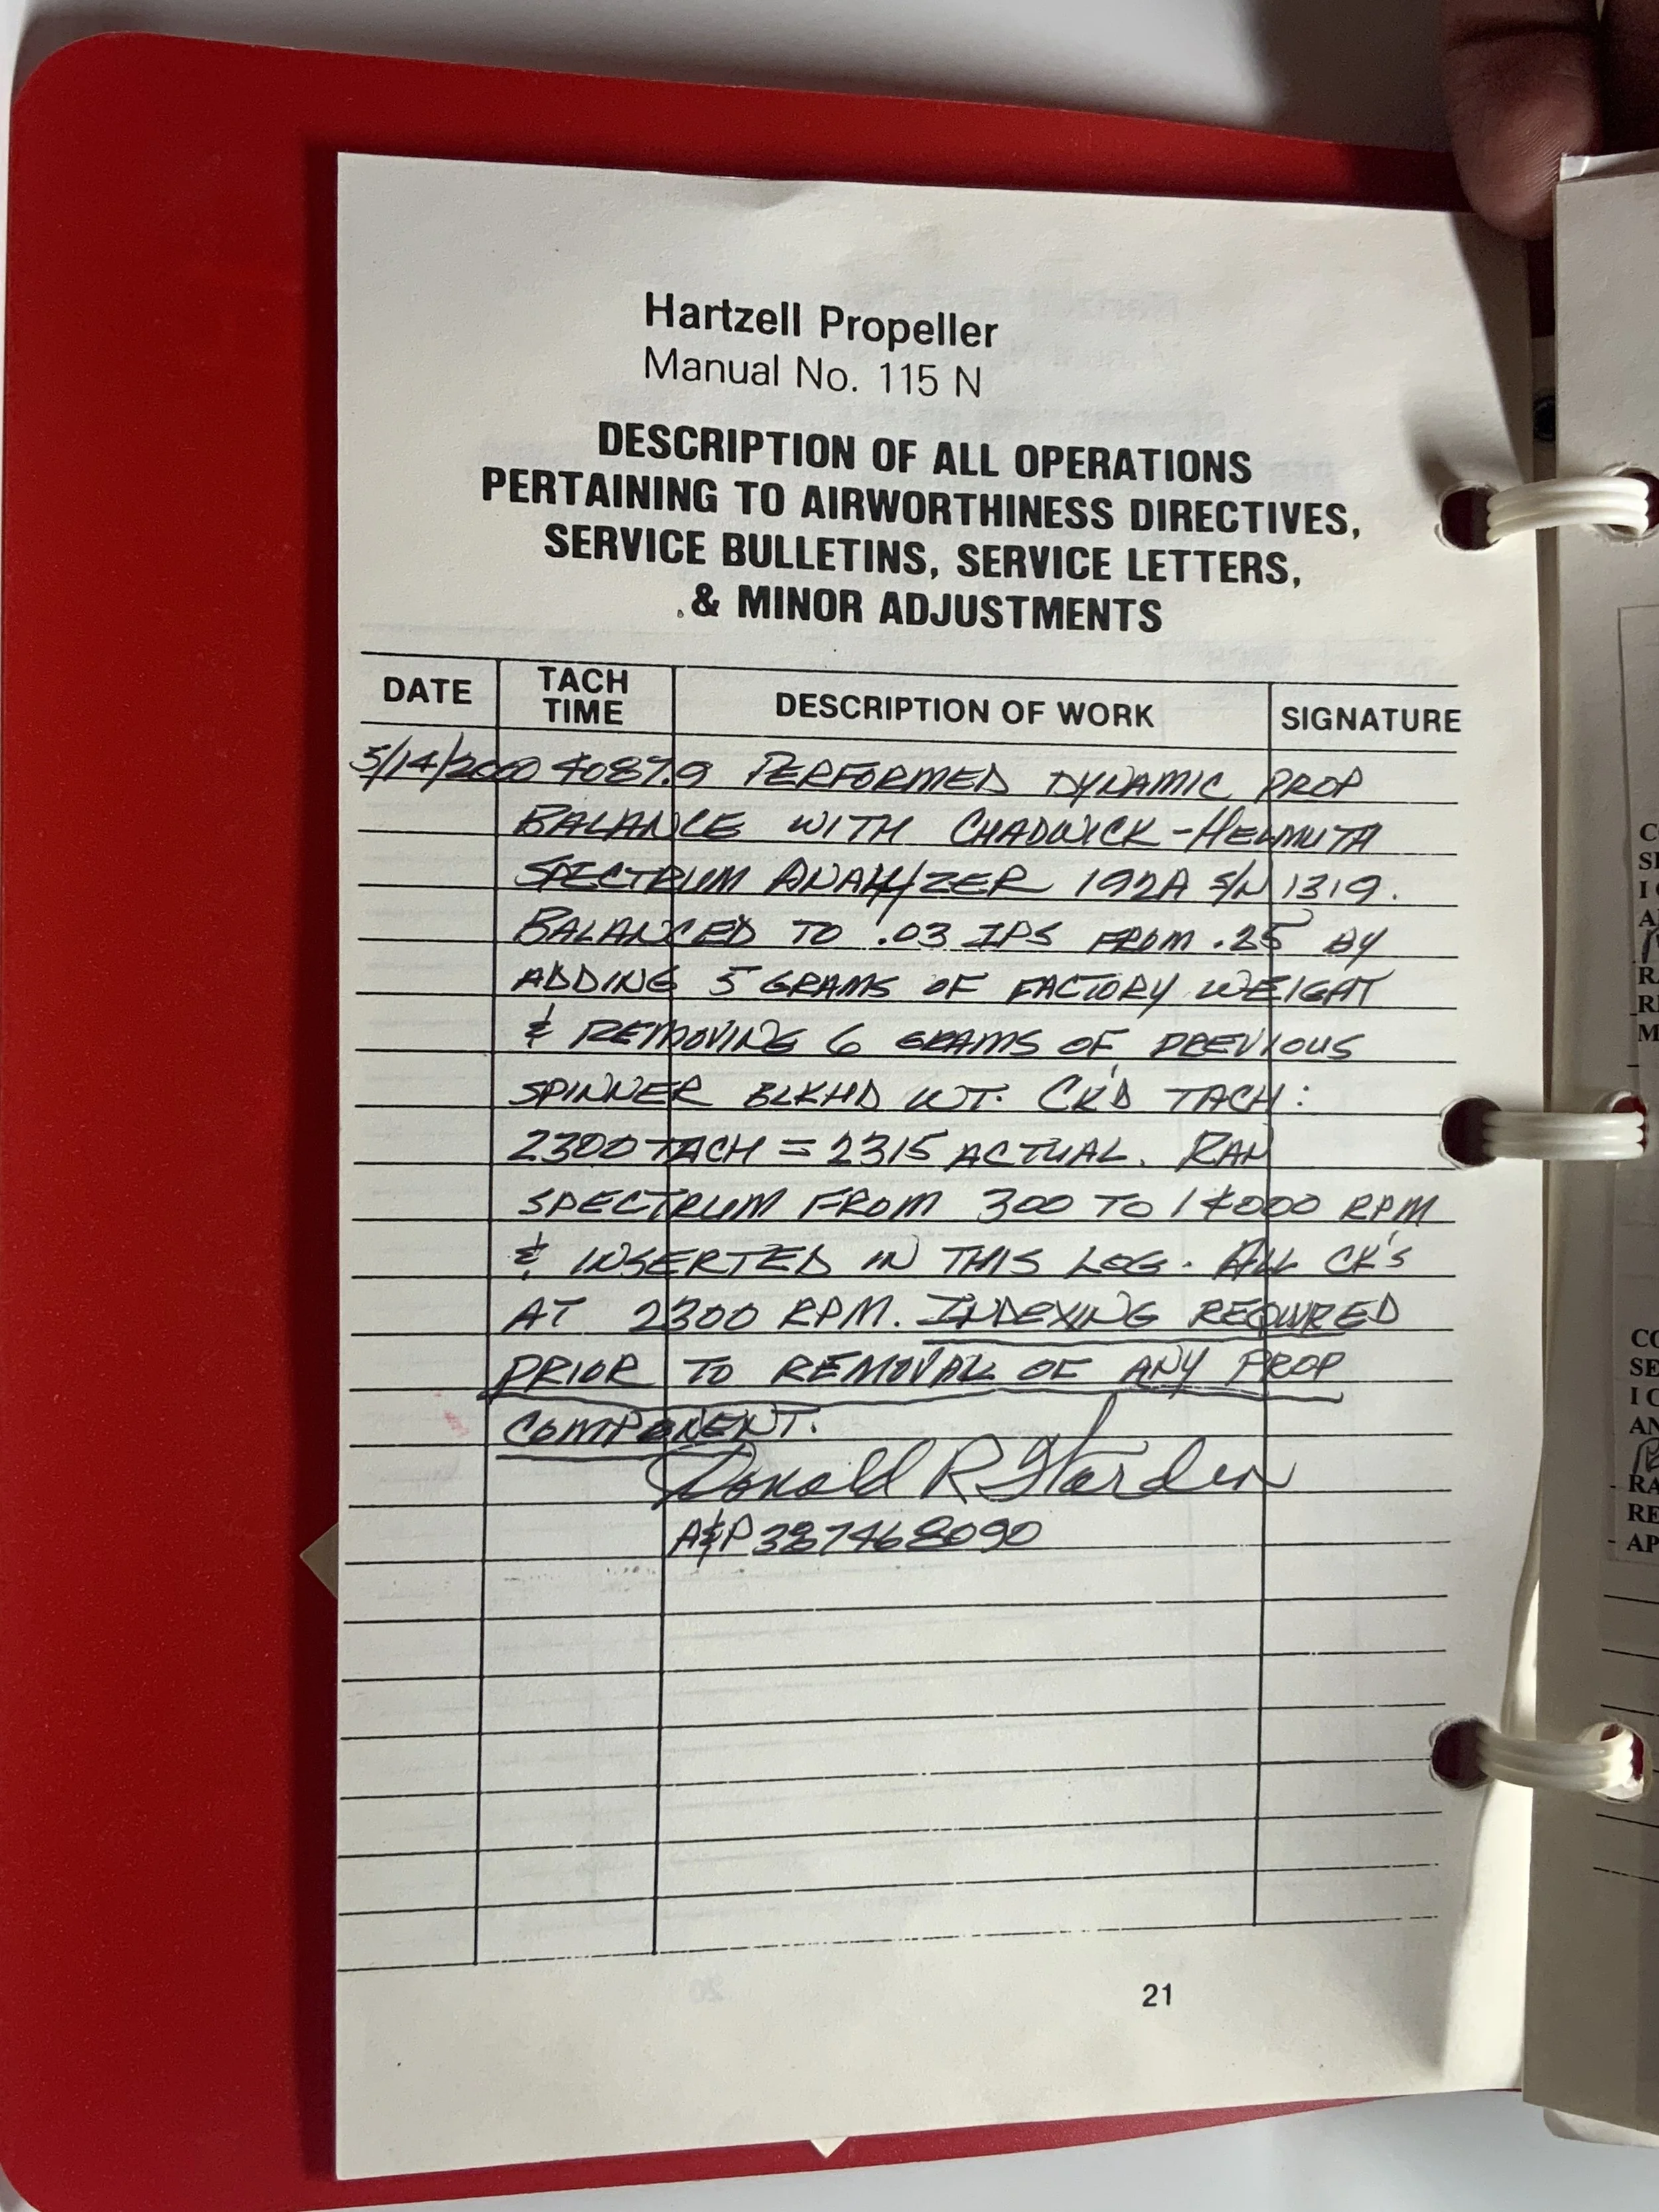 Hartzell Propeller
Manual No. 115 N
DESCRIPTION OF ALL OPERATIONS
PERTAINING TO AIRWORTHINESS DIRECTIVES,
SERVICE BULLETINS, SERVICE LETTERS,
& MINOR ADJUSTMENTS
DATE TACH TIME DESCRIPTION OF WORK SIGNATURE
5/14/2000 4087.9 PERFORMED DYNAMIC PROP
BALANCE WITH CHADWICK-HELMUTH
SPECTRUM ANALYZER 192A S/N 1319.
BALANCED TO .03 IPS FROM .25 BY
ADDING 5 GRAMS OF FACTORY WEIGHT
& REMOVING 6 GRAMS OF PREVIOUS
SPINNER BLKHD WT. CK'D TACH:
2300 TACH = 2315 ACTUAL. RAN
SPECTRUM FROM 300 TO 14000 RPM
& INSERTED IN THIS LOG. ALL CK'S
AT 2300 RPM. INDEXING REQUIRED
PRIOR TO REMOVAL OF ANY PROP
COMPONENT.
Donald R Harden
A&P 387468090
21